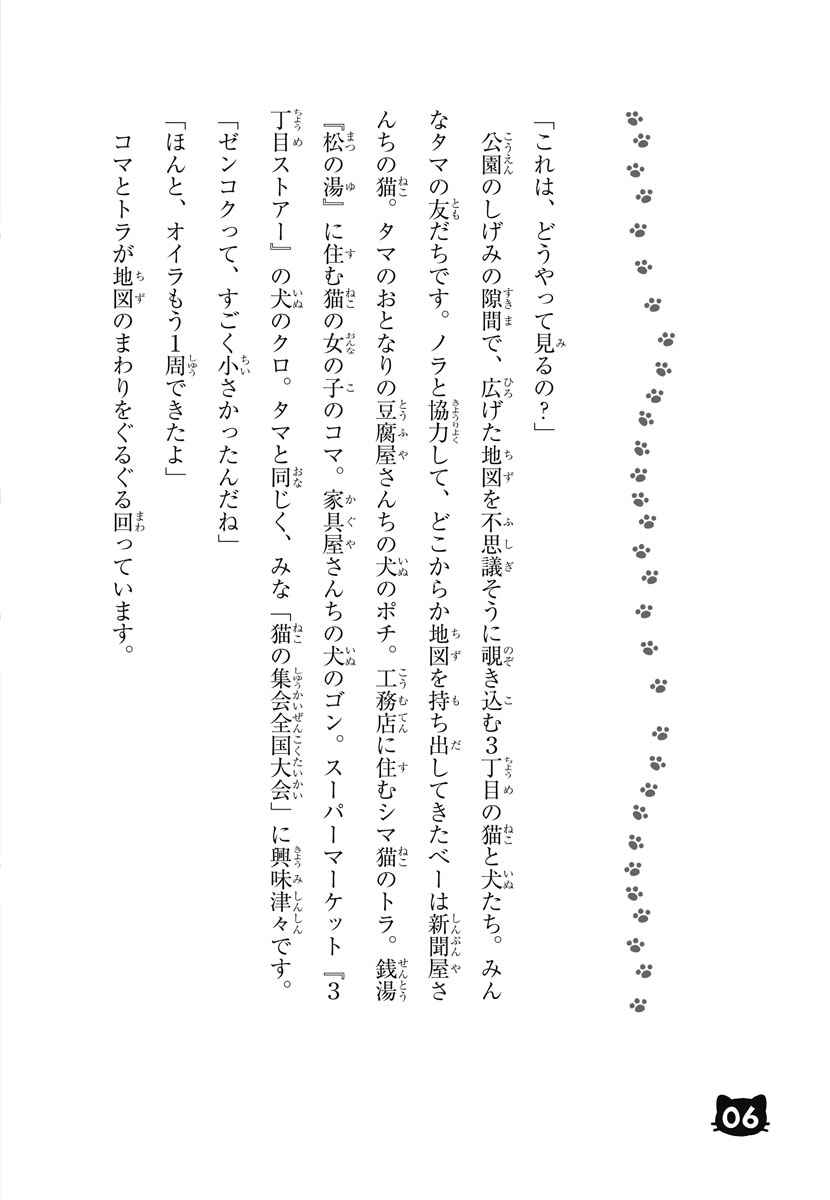 「これは、どうやって見るの？」
公園のしげみの隙間で、広げた地図を不思議そうに覗き込む３丁目の猫と犬たち。みん
なタマの友だちです。ノラと協力して、どこからか地図を持ち出してきたベーは新聞屋さ
んちの猫。タマのおとなりの豆腐屋さんちの犬のポチ。工務店に住むシマ猫のトラ。銭湯
『松の湯』に住む猫の女の子のコマ。家具屋さんちの犬のゴン。スーパーマーケット『３
丁目ストアー』の犬のクロ。タマと同じく、みな「猫の集会全国大会」に興味津々です。
「ゼンコクって、すごく小さかったんだね」
「ほんと、オイラもう１周できたよ」
コマとトラが地図のまわりをぐるぐる回っています。
06